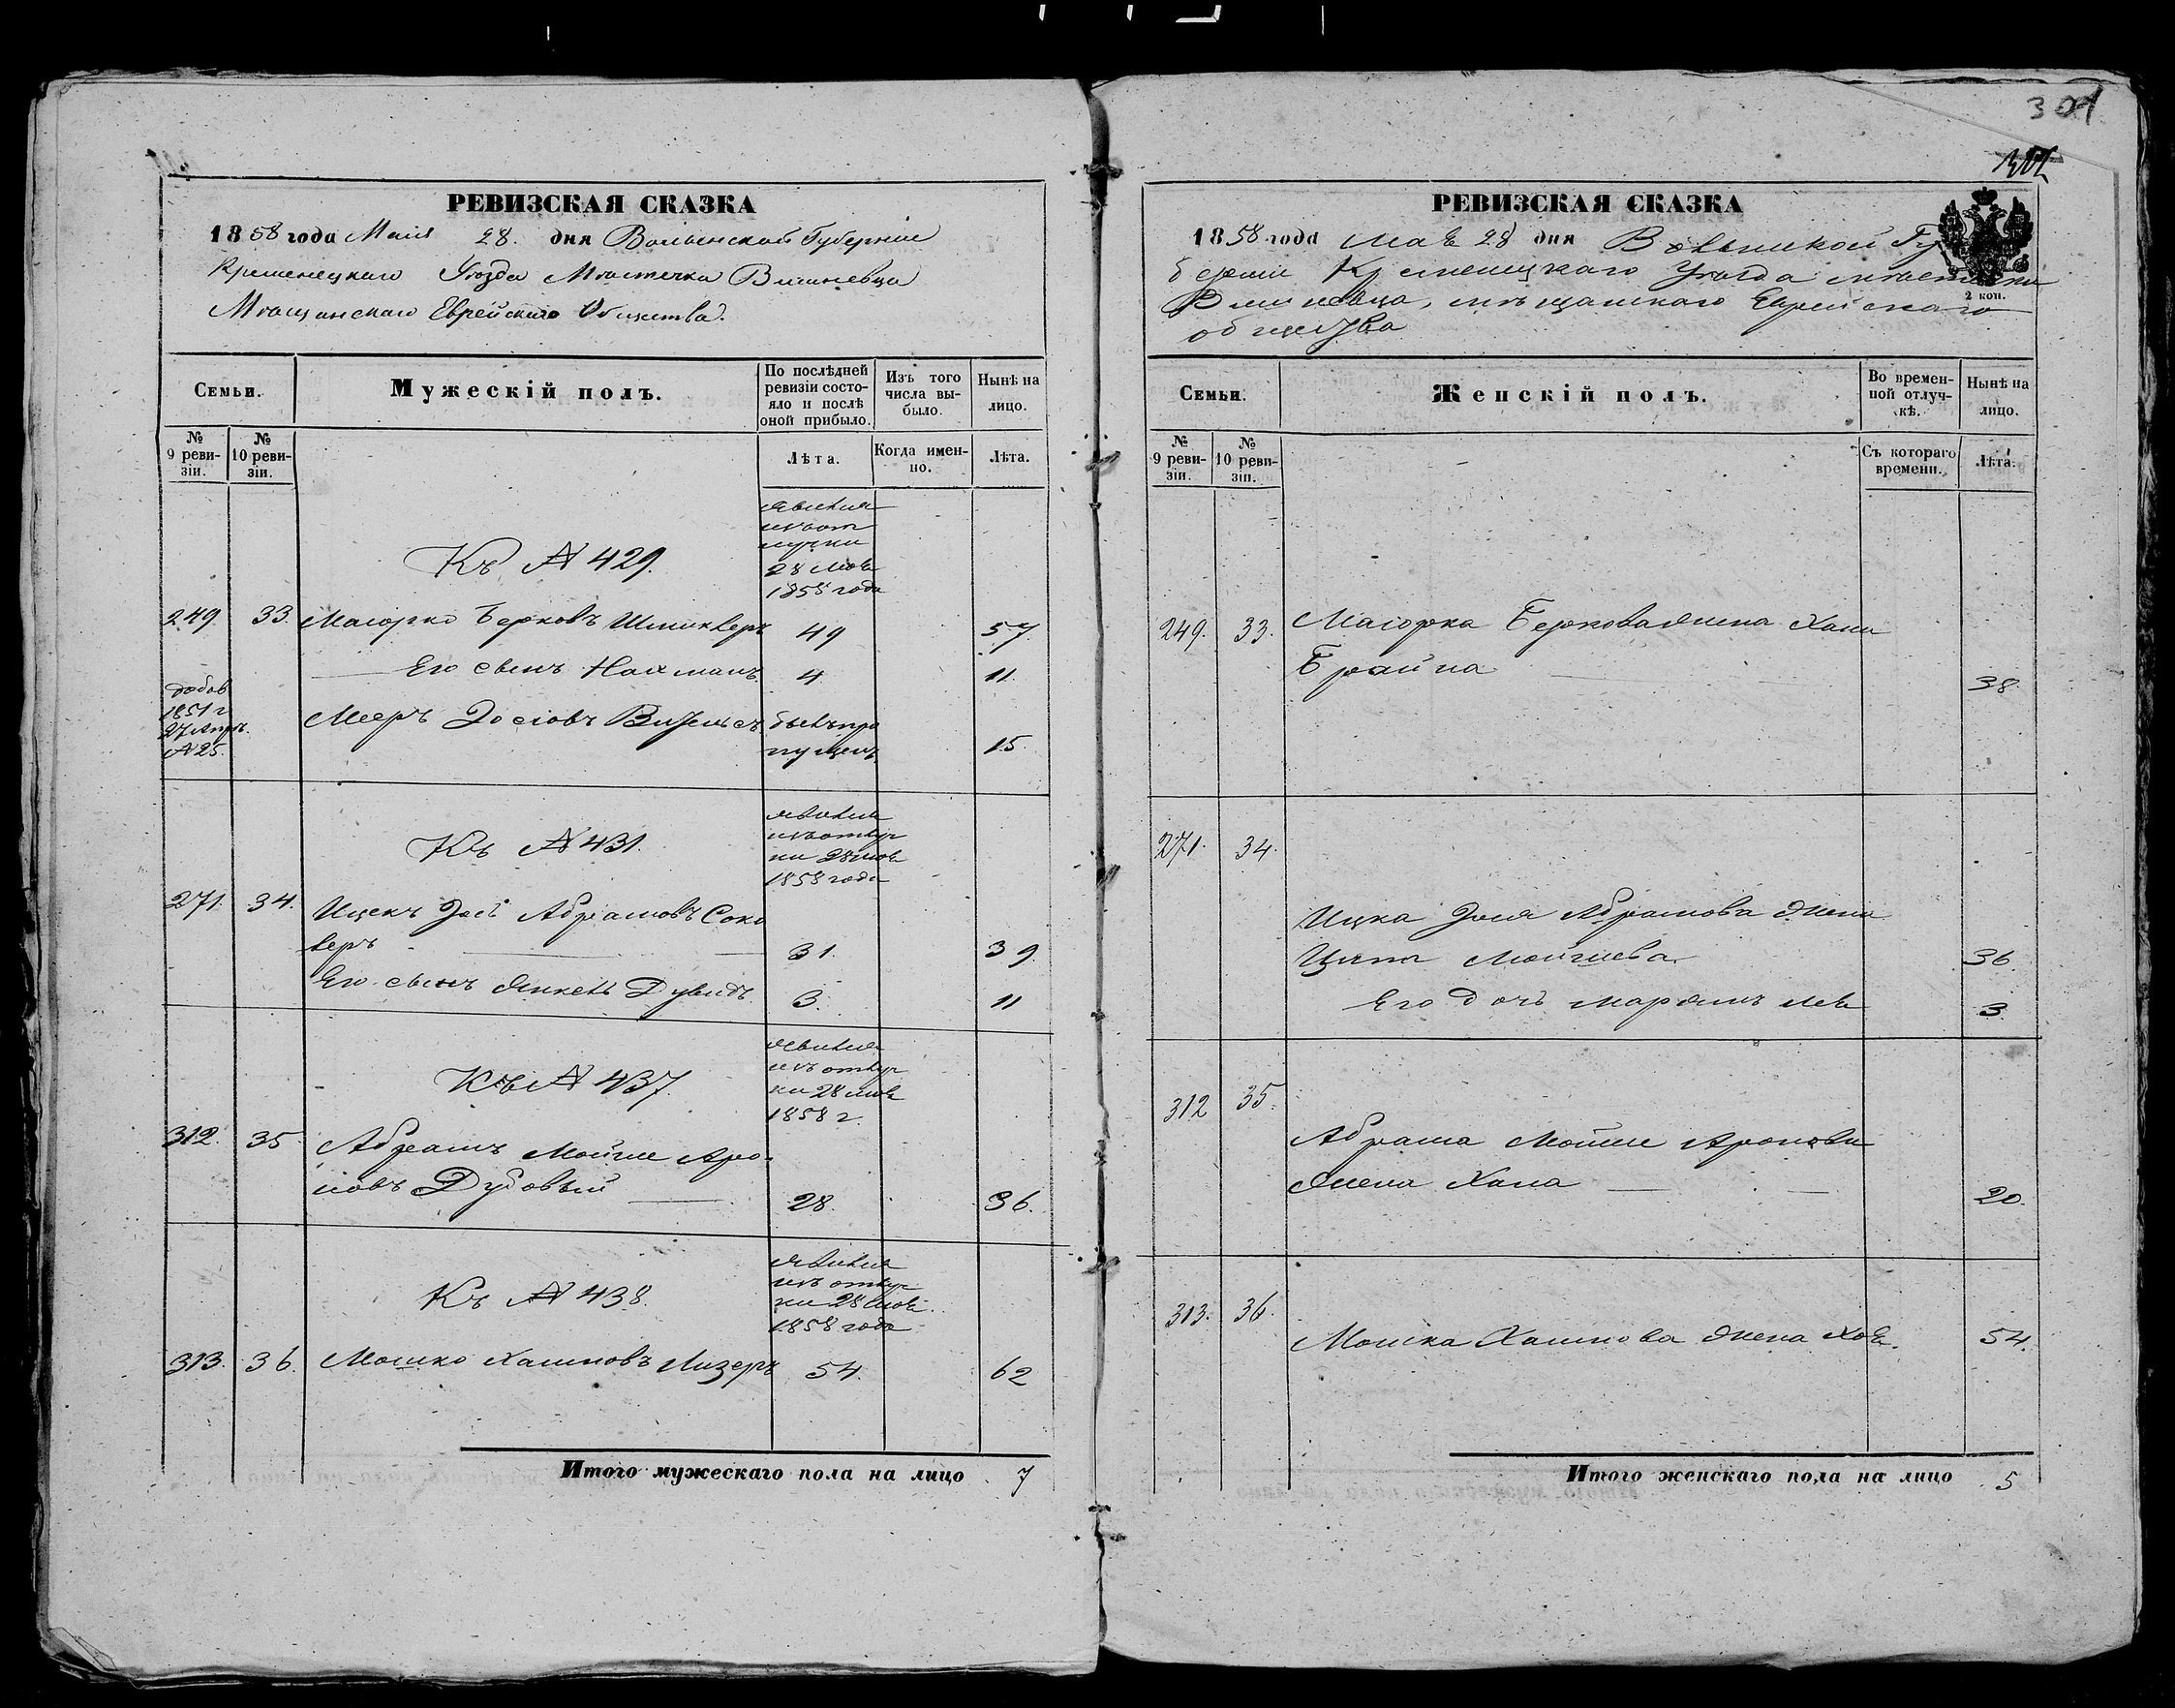 301
РЕВИЗСКАЯ СКАЗКА
1858 года Маія 28. дня Волынской Губерніи
Кременецкаго Уѣзда Мѣстечка Вишневца
Мѣщанскаго Еврейскаго Общества.
Семьи.
Мужескій полъ.
По послѣдней
ревизіи состо-
яло и послѣ
оной прибыло.
Изъ того
числа вы-
было.
Нынѣ на
лицо.
№
9 реви-
зіи.
№
10 реви-
зіи.
Лѣта.
Когда имен-
но.
Лѣта.
явился
изъ от
лучки
28 маѣ
1858 года
Къ № 429.
249 33. Маіорко Берковъ 49 57
Его сынъ Нахманъ. 4 11.
добов
1851 г
27 Апрѣ.
№ 25.
Мееръ Іосіовъ былъ про
пущенъ 15.
явился
изъ отлуч
ки 28 маѣ
1858 года
Къ № 431.
271. 34. Ицекъ Абрамовъ Соко
веръ 31. 39.
Его сынъ Янкель Дувидъ 3. 11
явился
изъ отлуч
ки 28 маѣ
1858 г.
Къ № 437.
312. 35 Абрамъ Мойше Аро-
новъ Дубовый 28. 36.
явился
изъ отлуч
ки 28 маѣ
1858 года
Къ № 438.
313. 36. Мошко Хаимовъ Лизеръ 54. 62
Итого мужескаго пола на лицо 7
РЕВИЗСКАЯ СКАЗКА
1858 года маѣ 28 дня Волынской Гу
берніи Кременецкаго Уѣзда мѣстечка
2 коп.
Вишневца, мѣщанскаго Еврейскаго
общества
Семьи.
Женскій полъ.
Во времен-
ной отлуч-
кѣ.
Нынѣ на
лицо.
№
9 реви-
зіи.
№
10 реви-
зіи.
Съ котораго
времени.
Лѣта.
249. 33. Маіорка Беркова жена Хана
Брайна 38.
271. 34.
Ицка Абрамова жена
Ципа Мойшева 36.
Его дочь Марьямъ 3.
312 35.
Абрама Мойше Аронова
жена Хана 20.
313. 36.
Мошка Хаимова жена Хаѣ. 54.
Итого женскаго пола на лицо 5